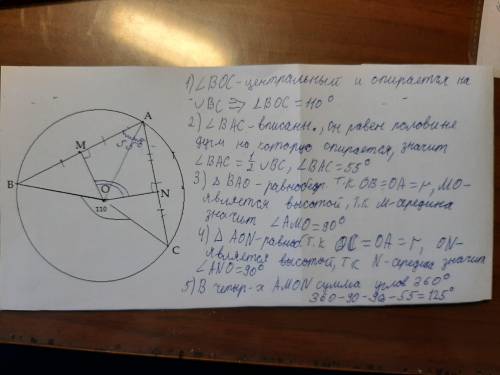 A
M
55
B
O
N
110
C
1) ∠BOC - центральный и опирается на
∪BC ⇒ ∠BOC = 110°
2) ∠BAC - вписанн., он равен половине
дуги на которую опирается, значит
∠BAC = 1/2 ∪BC, ∠BAC = 55°
3) △BAO - равнобедр т.к OB=OA=r, MO-
является высотой, т.к M-середина
значит ∠AMO=90°
4) △AON-равноб т.к OC=OA=r, ON-
является высотой, т.к N-середина значит
∠ANO=90°
5) В четыр-к AMON сумма углов 360°
360-90-90-55=125°